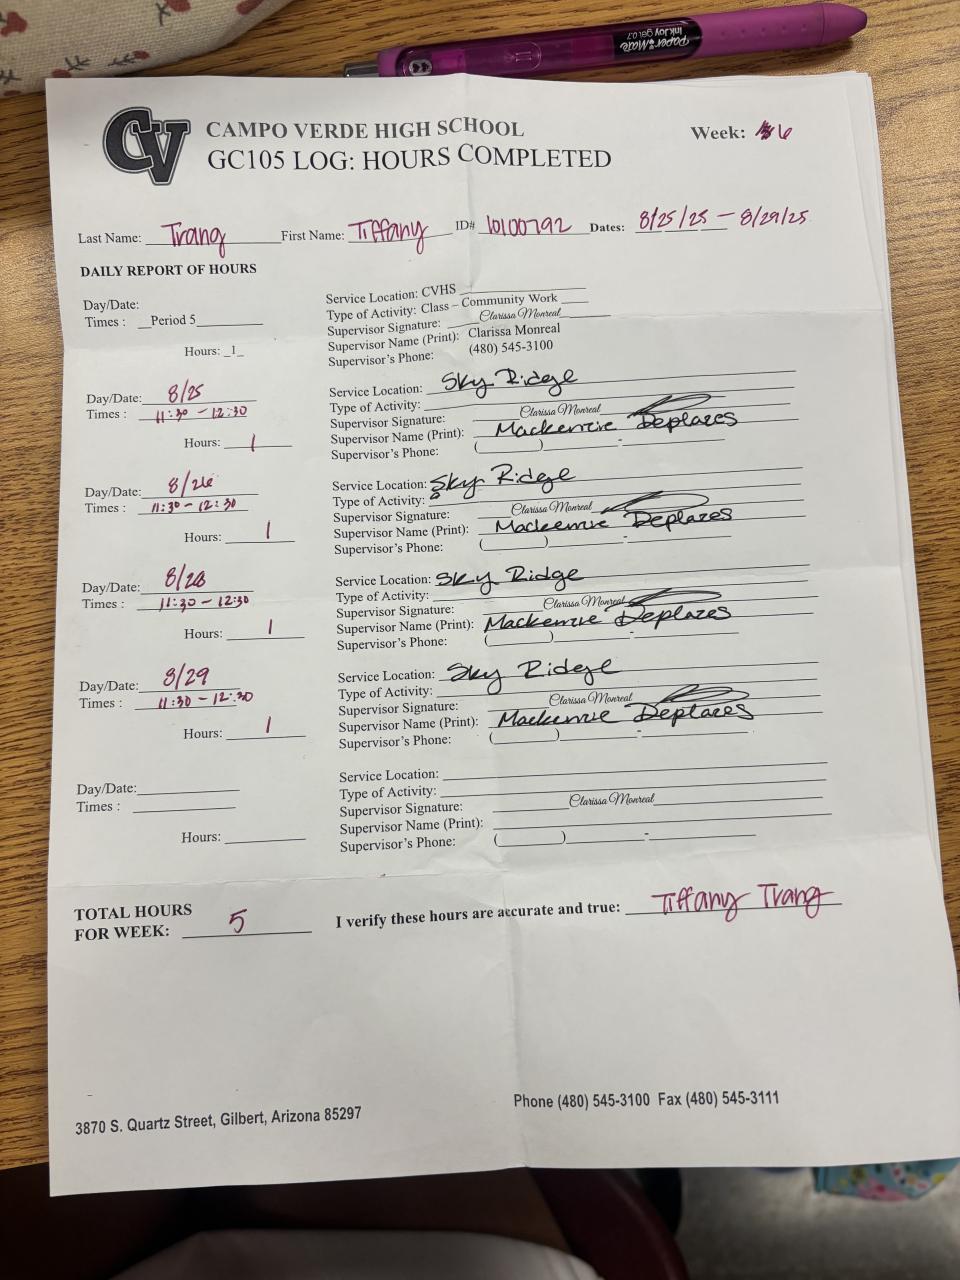 Paper Mate
InkJoy gel 0.7
CV
CAMPO VERDE HIGH SCHOOL
GC105 LOG: HOURS COMPLETED
Week: 6
Last Name: Trang First Name: Tiffany ID# 10100792 Dates: 8/25/25 - 8/29/25
DAILY REPORT OF HOURS
Day/Date:
Times : __Period 5
Hours: _1_
Service Location: CVHS
Type of Activity: Class – Community Work
Supervisor Signature: Clarissa Monreal
Supervisor Name (Print): Clarissa Monreal
Supervisor's Phone: (480) 545-3100
Day/Date: 8/25
Times : 11:30 - 12:30
Hours: 1
Service Location: Sky Ridge
Type of Activity:
Supervisor Signature: Clarissa Monreal
Supervisor Name (Print): Mackenzie Deplazes
Supervisor's Phone: ( ) -
Day/Date: 8/26
Times : 11:30 - 12:30
Hours: 1
Service Location: Sky Ridge
Type of Activity:
Supervisor Signature: Clarissa Monreal
Supervisor Name (Print): Mackenzie Deplazes
Supervisor's Phone: ( ) -
Day/Date: 8/28
Times : 11:30 - 12:30
Hours: 1
Service Location: Sky Ridge
Type of Activity:
Supervisor Signature: Clarissa Monreal
Supervisor Name (Print): Mackenzie Deplazes
Supervisor's Phone: ( ) -
Day/Date: 8/29
Times : 11:30 - 12:30
Hours: 1
Service Location: Sky Ridge
Type of Activity:
Supervisor Signature: Clarissa Monreal
Supervisor Name (Print): Mackenzie Deplazes
Supervisor's Phone: ( ) -
Day/Date:
Times :
Hours:
Service Location:
Type of Activity:
Supervisor Signature: Clarissa Monreal
Supervisor Name (Print):
Supervisor's Phone: ( ) -
TOTAL HOURS
FOR WEEK: 5
I verify these hours are accurate and true: Tiffany Trang
3870 S. Quartz Street, Gilbert, Arizona 85297
Phone (480) 545-3100 Fax (480) 545-3111